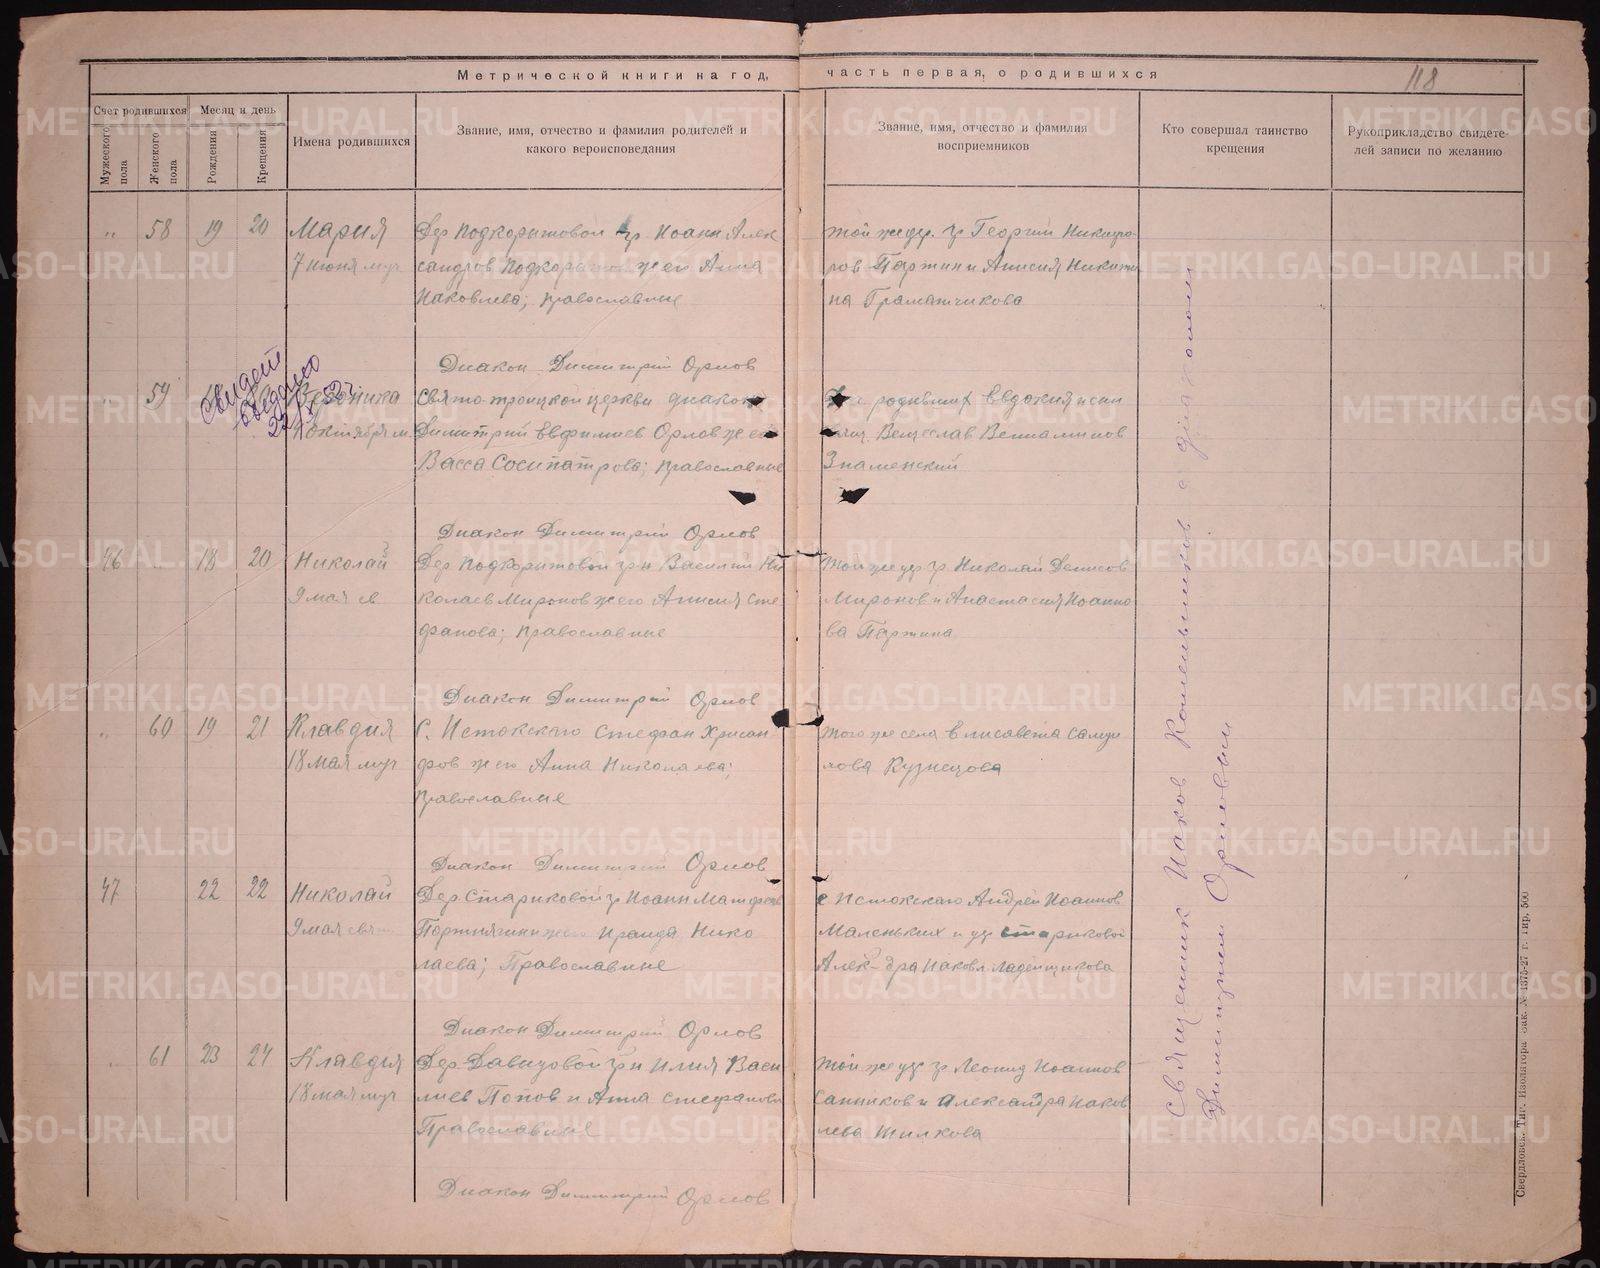 Метрической книги на год, часть первая, о родившихся
118
Счет родившихся
Месяц и день
Мужеского пола
Женского пола
Рождения
Крещения
Имена родившихся
Звание, имя, отчество и фамилия родителей и
какого вероисповедания
Звание, имя, отчество и фамилия
восприемников
Кто совершал таинство
крещения
Рукоприкладство свидете-
лей записи по желанию
" 58 19 20 Мария
7 июня муч
Дер Подкорытовой гр Иоанн Алек
сандров Подкорытов ж его Анна
Иаковлева; православные
той же дер. гр Георгий Никифо
ров Паржин и Анисия Никити
на Граматчикова
Диакон Димитрий Орлов
59
Свято-троицкой церкви диакон
Димитрий Евфимиев Орлов ж его
Васса Сосипатрова; православные
родивших Евдокия и син
Вячеслав Вениаминов
Знаменский
Диакон Димитрий Орлов
46 18 20 Николай
9 мая св
Дер Подкорытовой гр-н Василий Ни
колаев Миронов ж его Анисия Сте
фанова; православные
той же дер гр Николай Денисов
Миронов и Анастасия Иоанно
ва Паржина
Диакон Димитрий Орлов
" 60 19 21 Клавдия
18 мая муч
С. Истокского Стефан Хрисан
фов ж его Анна Николаева;
Православные
того же села Елисавета Самуи
лова Кузнецова
Диакон Димитрий Орлов
47 22 22 Николай
9 мая свят
Дер. Стариковой гр Иоанн Матфеев
ж его Ираида Нико
лаева; Православные
с Истокского Андрей Иоаннов
Маленьких и дер Стариковой
Алек-дра Иаковл Ладейщикова
Диакон Димитрий Орлов
61 23 24 Клавдия
18 мая муч
Дер. Давыдовой гр-н Илия Васи
лиев Попов и Анна Стефанова
Православные
той же дер гр Леонид Иоаннов
Санников и Александра Иаков
лева Шилкова
Диакон Димитрий Орлов
Священник Иаков Комельников с диаконом
Димитрием Орловым
Свердловск. Тип. Изолятора зак. № 1375-27 г. тир. 500
METRIKI.GASO-URAL.RU